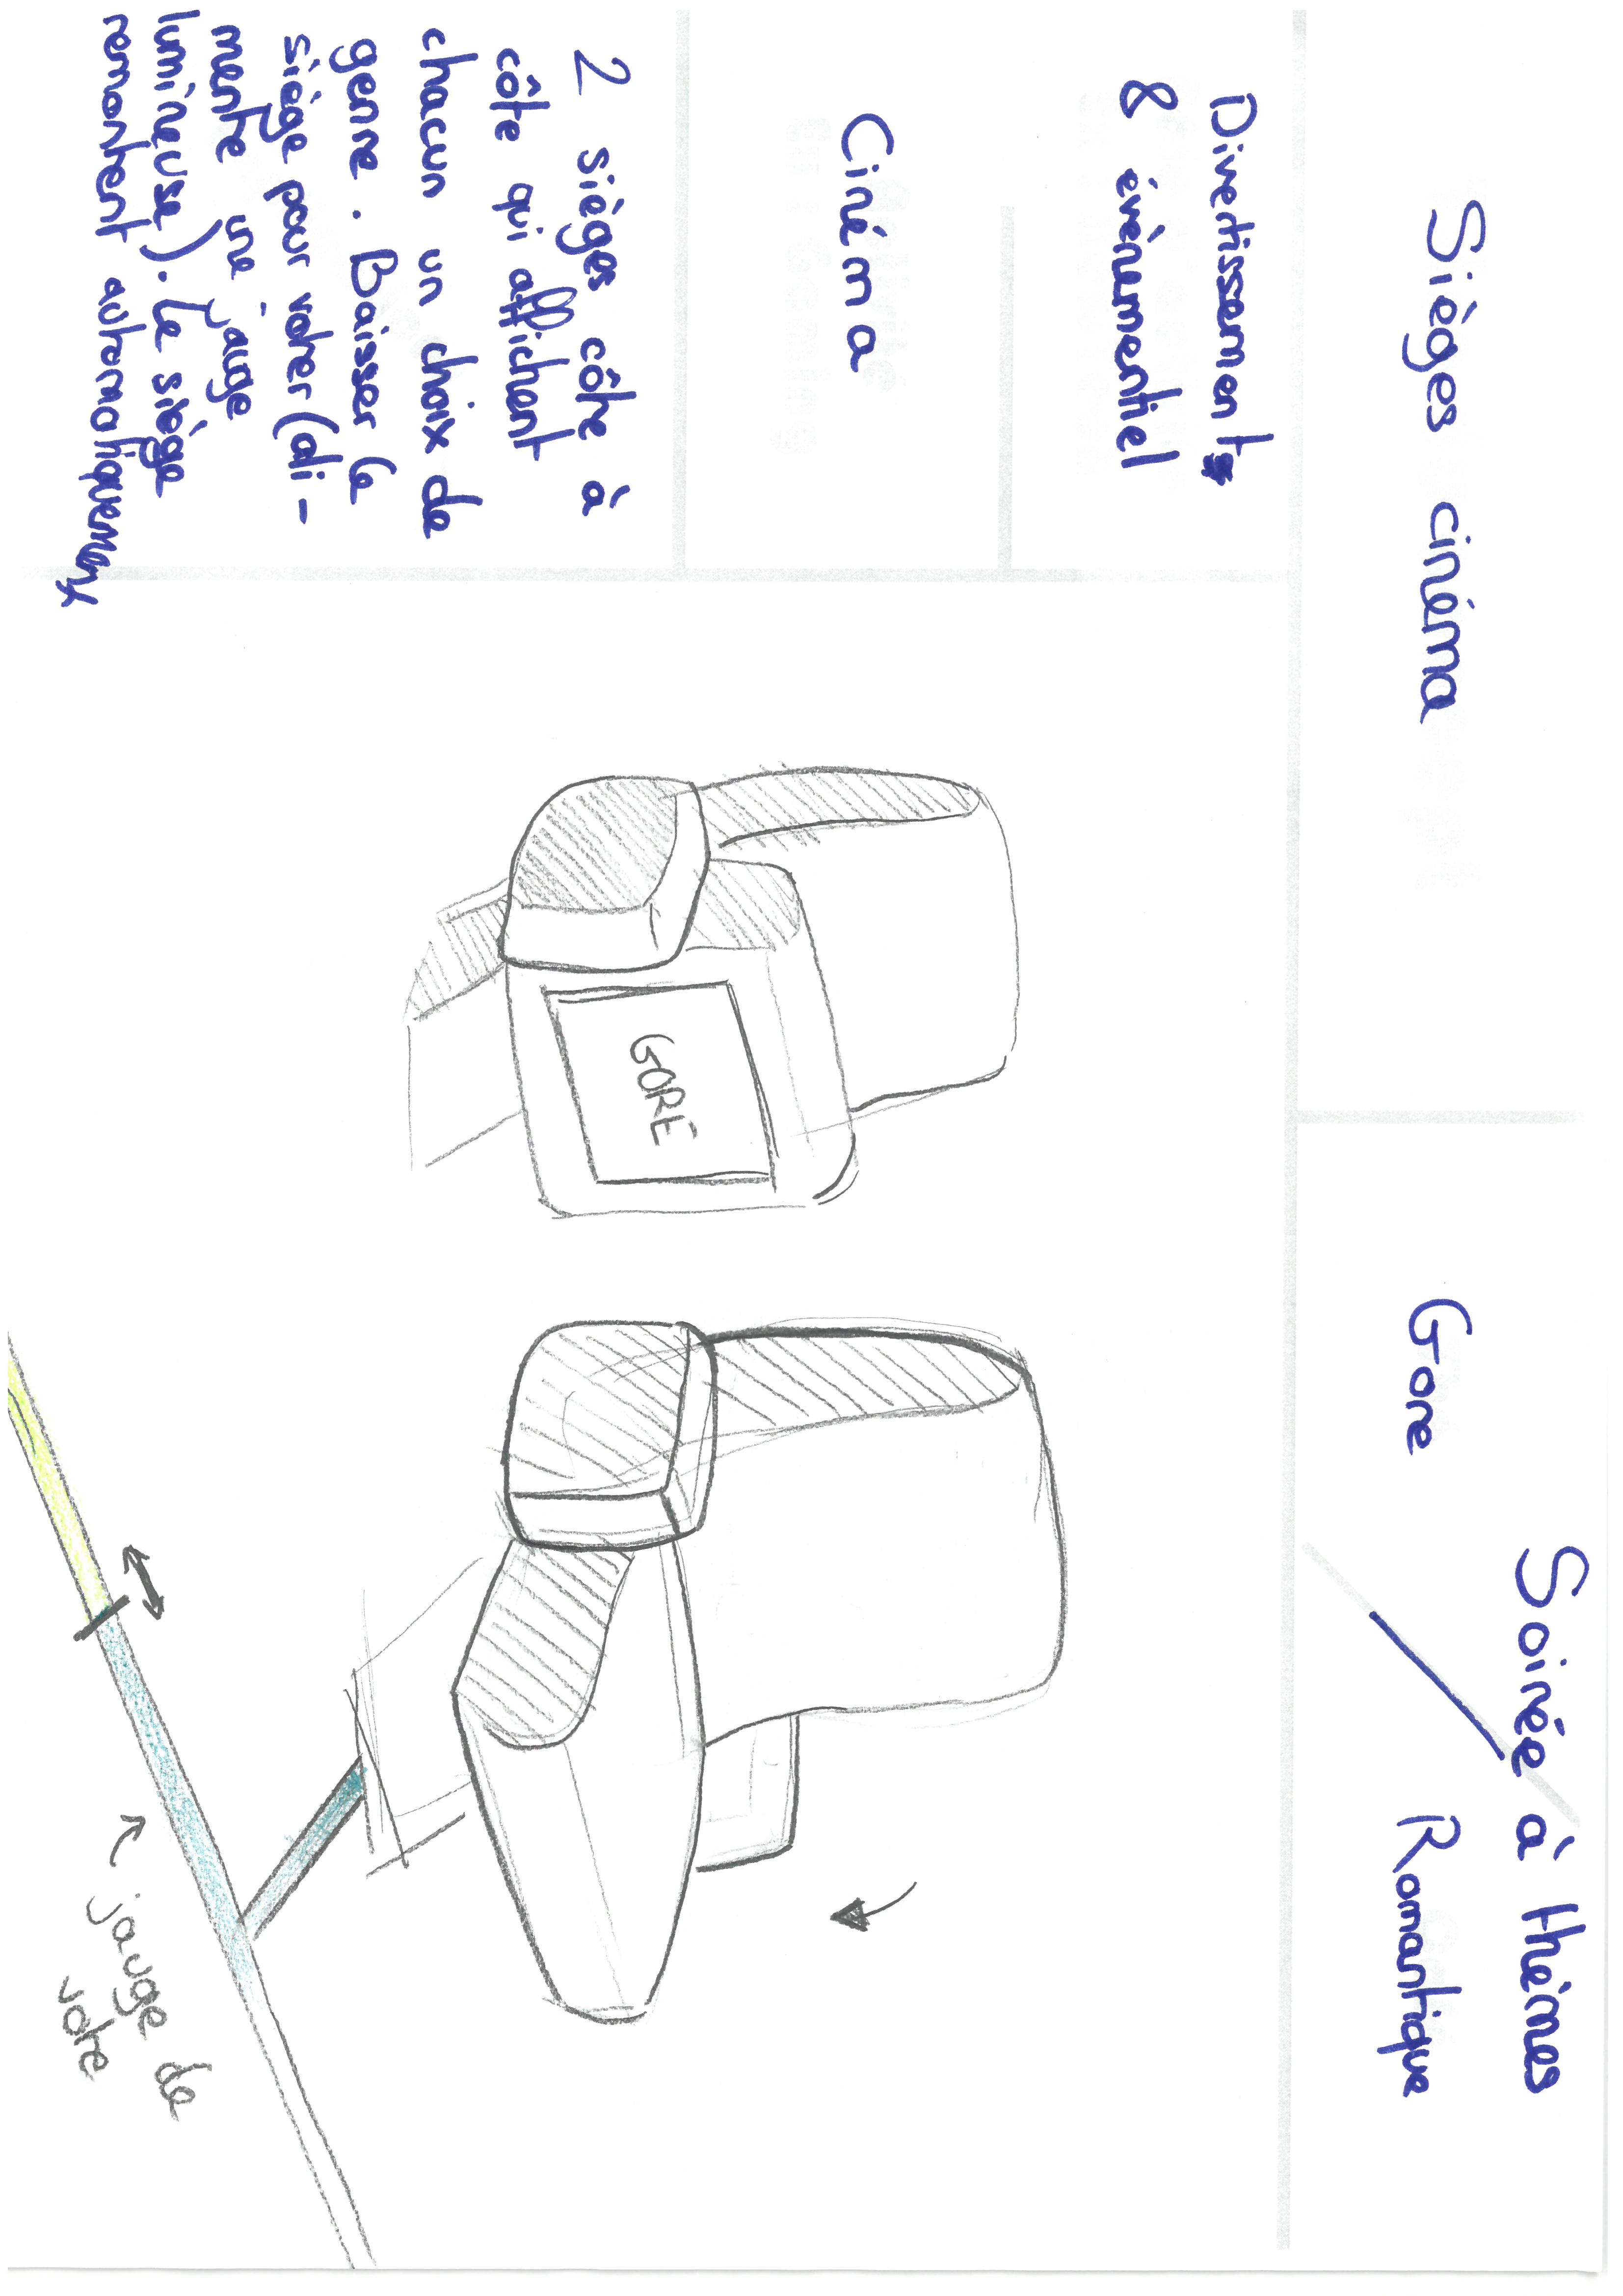 Sièges cinéma
Soirée à thèmes
Gore / Romantique
Divertissement
& évènementiel
Cinéma
2 sièges côte à
côte qui affichent
chacun un choix de
genre. Baisser le
siège pour voter (ali-
mente une jauge
lumineuse). Le siège
remontent automatiquement
GORE
jauge de
vote